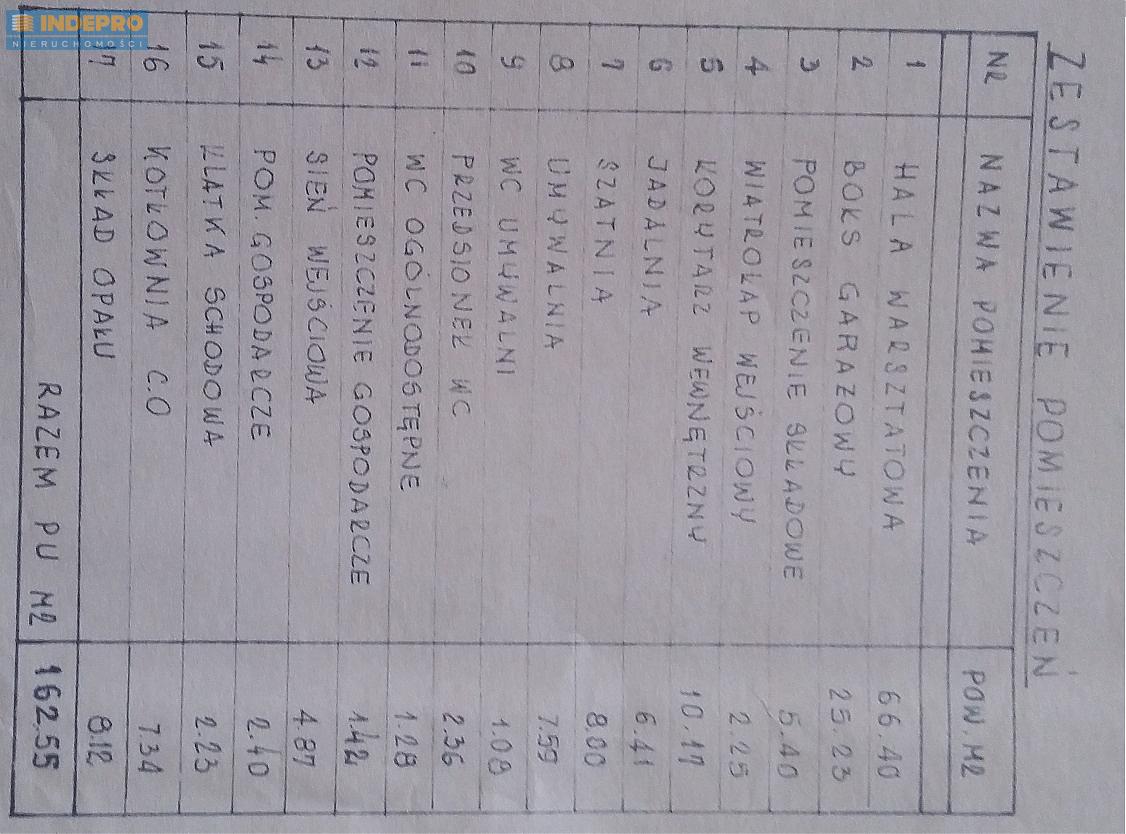 INDEPRO
NIERUCHOMOŚCI
ZESTAWIENIE POMIESZCZEŃ
NR NAZWA POMIESZCZENIA POW. M2
1 HALA WARSZTATOWA 66.40
2 BOKS GARAZOWY 25.23
3 POMIESZCZENIE SKŁADOWE 5.40
4 WIATROŁAP WEJŚCIOWY 2.25
5 KORYTARZ WEWNĘTRZNY 10.17
6 JADALNIA 6.41
7 SZATNIA 8.00
8 UMYWALNIA 7.59
9 WC UMYWALNI 1.08
10 PRZEDSIONEK WC 2.36
11 WC OGÓLNODOSTĘPNE 1.28
12 POMIESZCZENIE GOSPODARCZE 1.42
13 SIEŃ WEJŚCIOWA 4.87
14 POM. GOSPODARCZE 2.40
15 KLATKA SCHODOWA 2.23
16 KOTŁOWNIA C.O 7.34
17 SKŁAD OPAŁU 8.12
RAZEM PU M2 162.55